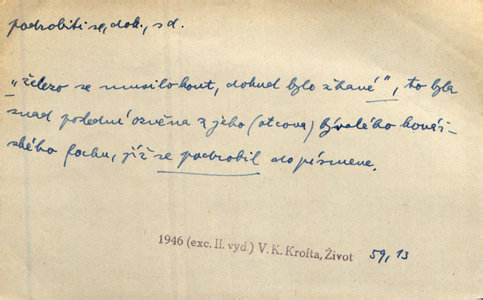 podrobiti se, dok., sd.
„železo se musilo kout, dokud bylo žhavé“, to byla
snad poslední ozvěna z jeho (otcova) bývalého kovář-
ského fochu, jíž se podrobil do písmene.
1946 (exc. II. vyd.) V. K. Krofta, Život 59, 13